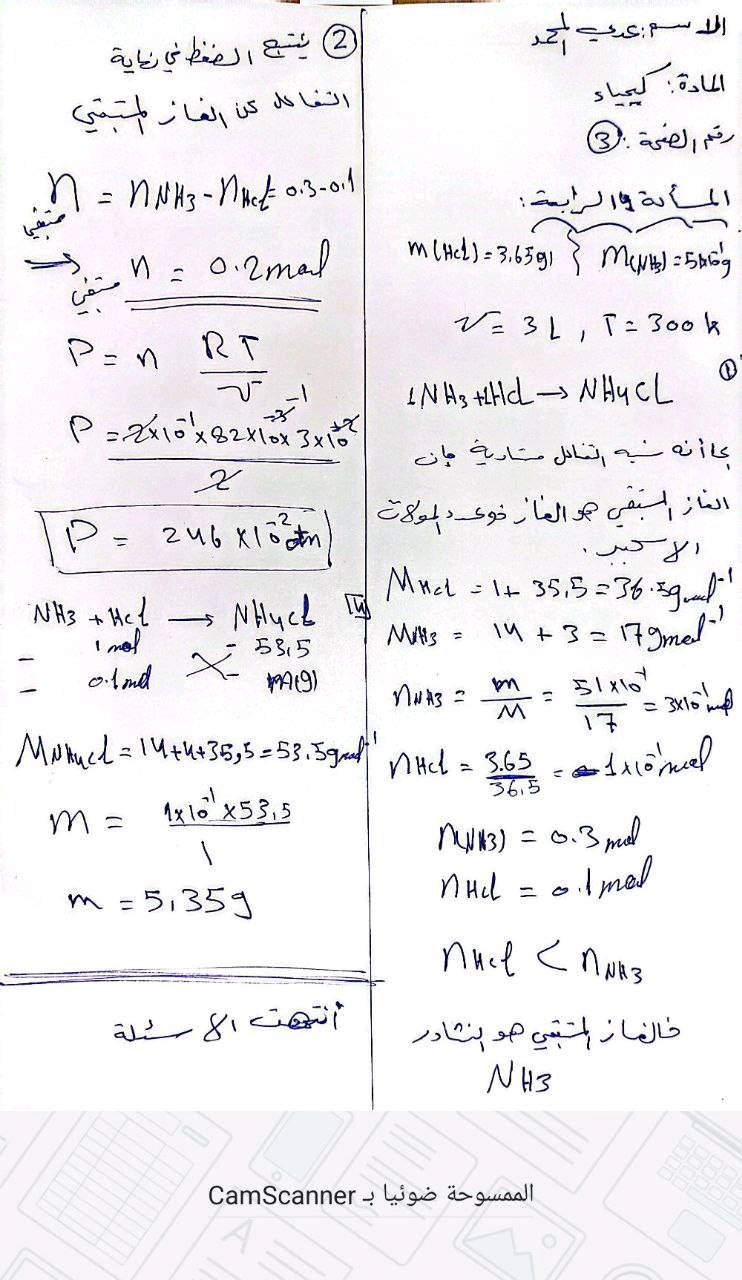 الاسم: عدي المحمد
المادة: كيمياء
رقم الصفحة: ③
المسألة الرابعة:
m(HCl) = 3,65g } m(NH3) = 51x10⁻¹g
V = 3L , T = 300 k
①
1NH3 + 1HCl → NH4CL
بما أنه نسبة التفاعل متساوية فإن
الغاز المتبقي هو الغاز ذو عدد المولات
الأكبر.
MHCl = 1 + 35,5 = 36.5 g mol⁻¹
MNH3 = 14 + 3 = 17 g mol⁻¹
nNH3 = m/M = 51x10⁻¹/17 = 3x10⁻¹ mol
nHCl = 3.65/36,5 = 1x10⁻¹ mol
n(NH3) = 0.3 mol
nHCl = 0.1 mol
nHCl < nNH3
فالغاز المتبقي هو النشادر
NH3
② ينتج الضغط في نهاية
التفاعل عن الغاز المتبقي
n متبقي = nNH3 - nHCl = 0.3 - 0.1
→ n متبقي = 0.2 mol
P = n RT/V
P = 2x10⁻¹ x 82x10⁻³ x 3x10²
P = 246 x 10⁻² atm
NH3 + HCl → NH4CL
1 mol 53,5
0.1 mol m(g)
MNH4Cl = 14+4+35,5 = 53.5 g mol⁻¹
m = 1x10⁻¹ x 53,5 / 1
m = 5,35g
أنتهت الأسئلة
الممسوحة ضوئيا بـ CamScanner